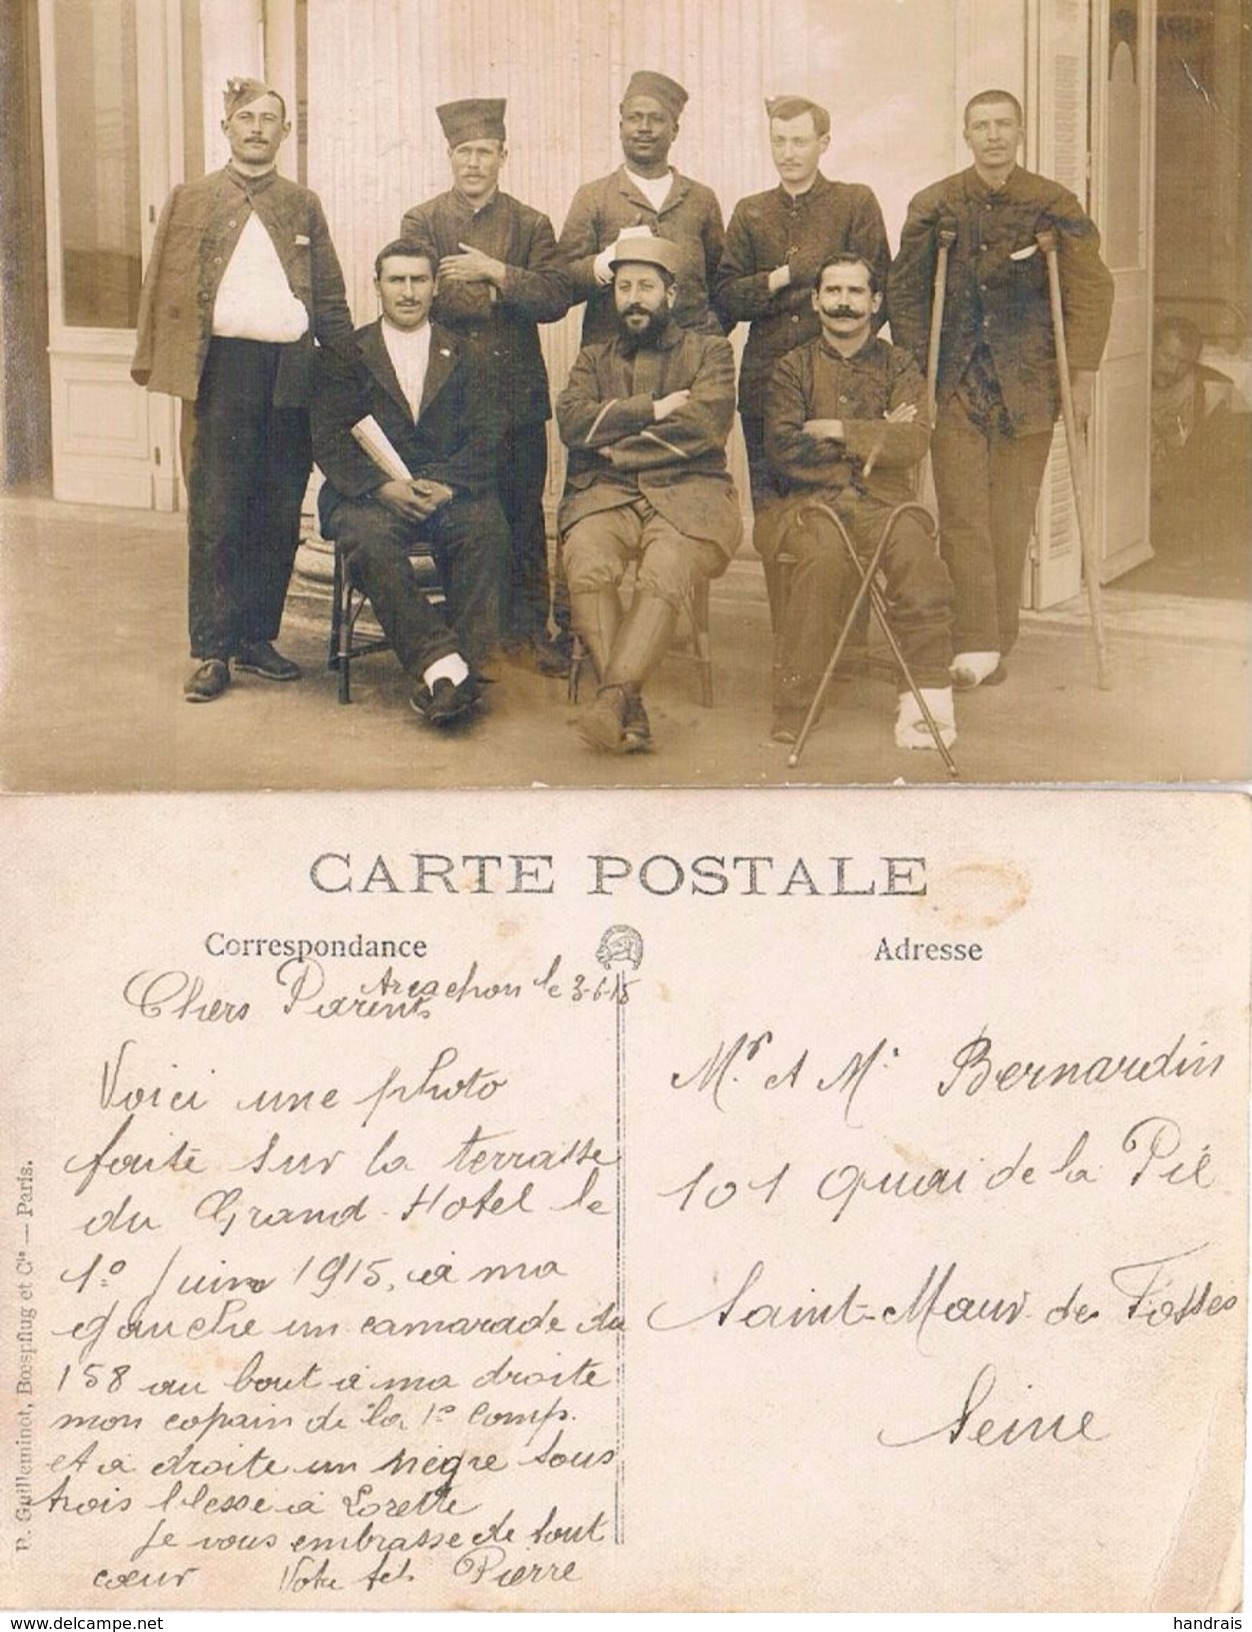 CARTE POSTALE
Correspondance
Adresse
Arcachon le 3-6-15
Chers Parents
Voici une photo
faite sur la terrasse
du Grand-Hotel le
1º Juin 1915, à ma
gauche un camarade du
158 au bout à ma droite
mon copain de la 1º Comp.
et à droite un nègre tous
trois blessé à Lorette
Je vous embrasse de tout
cœur Votre fils Pierre
Mr et M. Bernardin
101 Quai de la Pie
Saint-Maur des Fossés
Seine
R. Guilleminot, Bœspflug et Cie — Paris.
https://www.delcampe.net
handrais